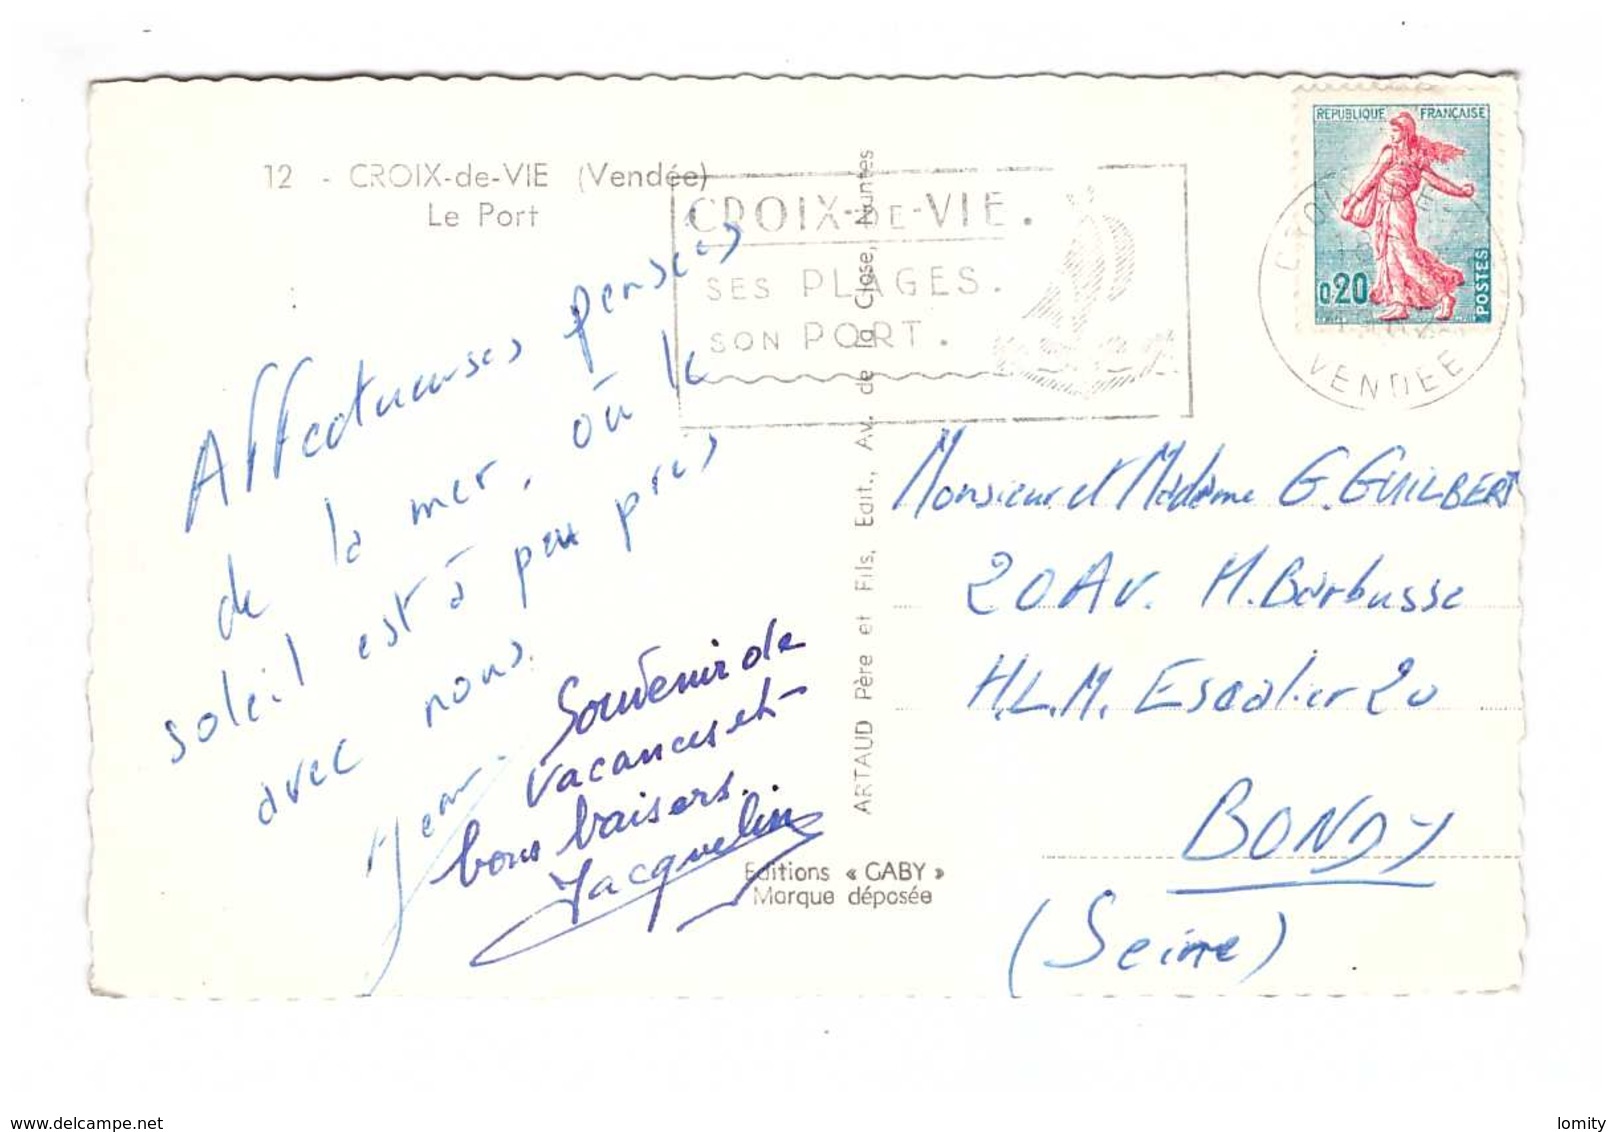 12 - CROIX-de-VIE (Vendée)
Le Port
CROIX-DE-VIE.
SES PLAGES.
SON PORT.
REPUBLIQUE FRANÇAISE
0,20
POSTES
VENDEE
Affectueuses pensées
de la mer, où le
soleil est à peu près
avec nous.
Souvenir de
vacances et
bons baisers.
Jacqueline
ARTAUD Père et Fils, Edit., Av. de la Close, Nantes
Editions « GABY »
Marque déposée
Monsieur et Madame G. GUILBERT
20 Av. H. Barbusse
H.L.M. Escalier 20
BONDY
(Seine)
souvenir-decartespostales.delcampe.net
lomity